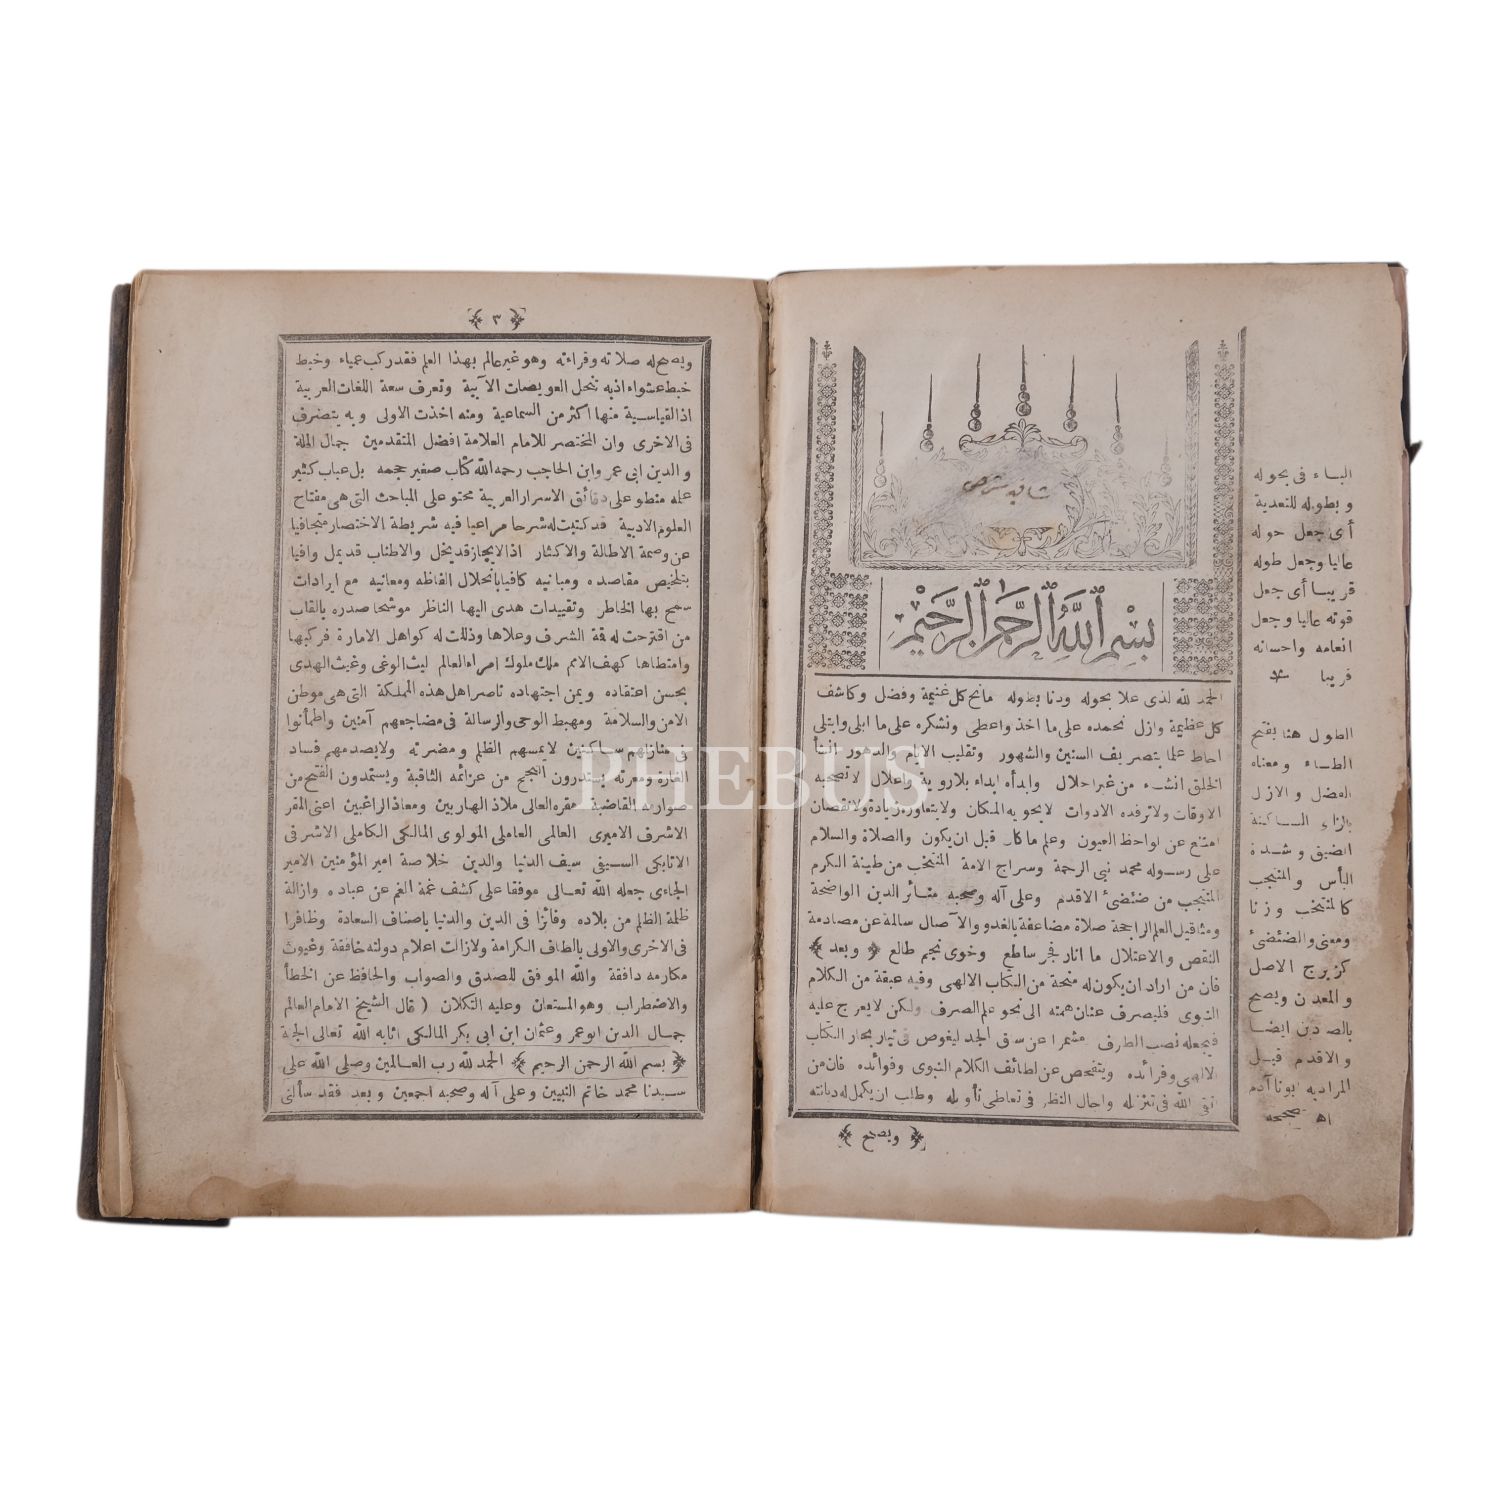 شافيه شرحى
بسم الله الرحمن الرحيم
الحمد لله لذى علا بحوله ودنا بطوله مانح كل غنيمة وفضل وكاشف
كل عظيمة وازل نحمده على ما اخذ واعطى ونشكره على ما ابلى وابتلى
احاط علما بتصريف السنين والشهور وتقليب الايام والدهور انشأ
الخلق انشاء من غير احلال وابدأه ابداء بلاروية واعلال لا تصحبه
الاوقات ولا ترفده الادوات لا يحويه المكان ولا يتعاوره زيادة ولا نقصان
امتنع عن لواحظ العيون وعلم ما كان قبل ان يكون والصلاة والسلام
على رسوله محمد نبى الرحمة وسراج الامة المنتخب من طينة الكرم
المنتجب من ضئضئ الاقدم وعلى آله وصحبه منائر الدين الواضحة
ومثاقيل العلم الراجحة صلاة مضاعفة بالغدو والآصال سالمة عن مصادمة
النقص والاعتلال ما انار فجر ساطع وخوى نجم طالع ﴿ وبعد ﴾
فان من اراد ان يكون له منحة من الكتاب الالهى وفيه عبقة من الكلام
النبوى فليصرف عنان همته الى نحو علم الصرف ولكن لا يعرج عليه
فيجعله نصب الطرف مشمرا عن سق الجد ليغوص فى تيار بحار الكتاب
الالهى وفرائده ويتفحص عن لطائف الكلام النبوى وفوائده فان من
تقى الله فى تنزيله واحال النظر فى تعاطى تأويله وطلب ان يكمل له ديانته
﴿ ويصح ﴾
الباء فى بحوله
وبطوله للتعدية
أى جعل حوله
عاليا وجعل طوله
قريبا أى جعل
قوته عاليا وجعل
انعامه واحسانه
قريبا
الطول هنا بفتح
الطاء ومعناه
الفضل والازل
بالزاء الساكنة
الضيق وشدة
البأس والمنتجب
كالمنتخب وزنا
ومعنى والضئضئ
كزبرج الاصل
والمعدن ويصح
بالصادين ايضا
والاقدم قيل
المراد به ابونا آدم
اه صححه
﴿ ٣ ﴾
ويصح له صلاته وقراءته وهو غير عالم بهذا العلم فقد ركب عمياء وخبط
خبط عشواء اذبه تنحل العويصات الآبية وتعرف سعة اللغات العربية
اذ القياسية منها اكثر من السماعية ومنه اخذت الاولى وبه يتصرف
فى الاخرى وان المختصر للامام العلامة افضل المتقدمين جمال الملة
والدين ابى عمر وابن الحاجب رحمه الله كتاب صغير حجمه بل عباب كثير
علمه منطو على دقائق الاسرار العربية محتو على المباحث التى هى مفتاح
العلوم الادبية فد كتبت له شرحا مراعيا فيه شريطة الاختصار متجافيا
عن وصمة الاطالة والاكثار اذ الايجاز قد يخل والاطناب قد يمل وافيا
بتلخيص مقاصده ومبانيه كافيا بانحلال الفاظه ومعانيه مع ايرادات
سمح بها الخاطر وتقييدات هدى اليها الناظر موشحا صدره بالقاب
من اقترحت له قمة الشرف وعلاها وذللت له كواهل الامارة فركبها
وامتطاها كهف الامم ملك ملوك امراء العالم ليث الوغى وغيث الهدى
بحسن اعتقاده ويمن اجتهاده ناصر اهل هذه المملكة التى هى موطن
الامن والسلامة ومهبط الوحى والرسالة فى مضاجعهم آمنين واطمأنوا
فى منازلهم ساكنين لا يمسهم الظلم ومضرته ولا يصدمهم فساد
الغارة ومعرته يستدرون النجح من عزائمه الثاقبة ويستمدون الفتح من
صوارمه القاضبة مقره العالى ملاذ الهاربين ومعاذ الراغبين اعنى المقر
الاشرف الاميرى العالمى العاملى المولوى المالكى الكاملى الاشرفى
الاتابكى السيفى سيف الدنيا والدين خلاصة امير المؤمنين الامير
الجاءى جعله الله تعالى موفقا على كشف غمة الغم عن عباده وازالة
ظلمة الظلم من بلاده وفائزا فى الدين والدنيا باصناف السعادة وظافرا
فى الاخرى والاولى بالطاف الكرامة ولازالت اعلام دولته خافقة وغيوث
مكارمه دافقة والله الموفق للصدق والصواب والحافظ عن الخطأ
والاضطراب وهو المستعان وعليه التكلان ( قال الشيخ الامام العالم
جمال الدين ابو عمر وعثمان ابن ابى بكر المالكى اثابه الله تعالى الجنة
﴿ بسم الله الرحمن الرحيم ﴾ الحمد لله رب العالمين وصلى الله على
سيدنا محمد خاتم النبيين وعلى آله وصحبه اجمعين وبعد فقد سألنى
PHEBUS